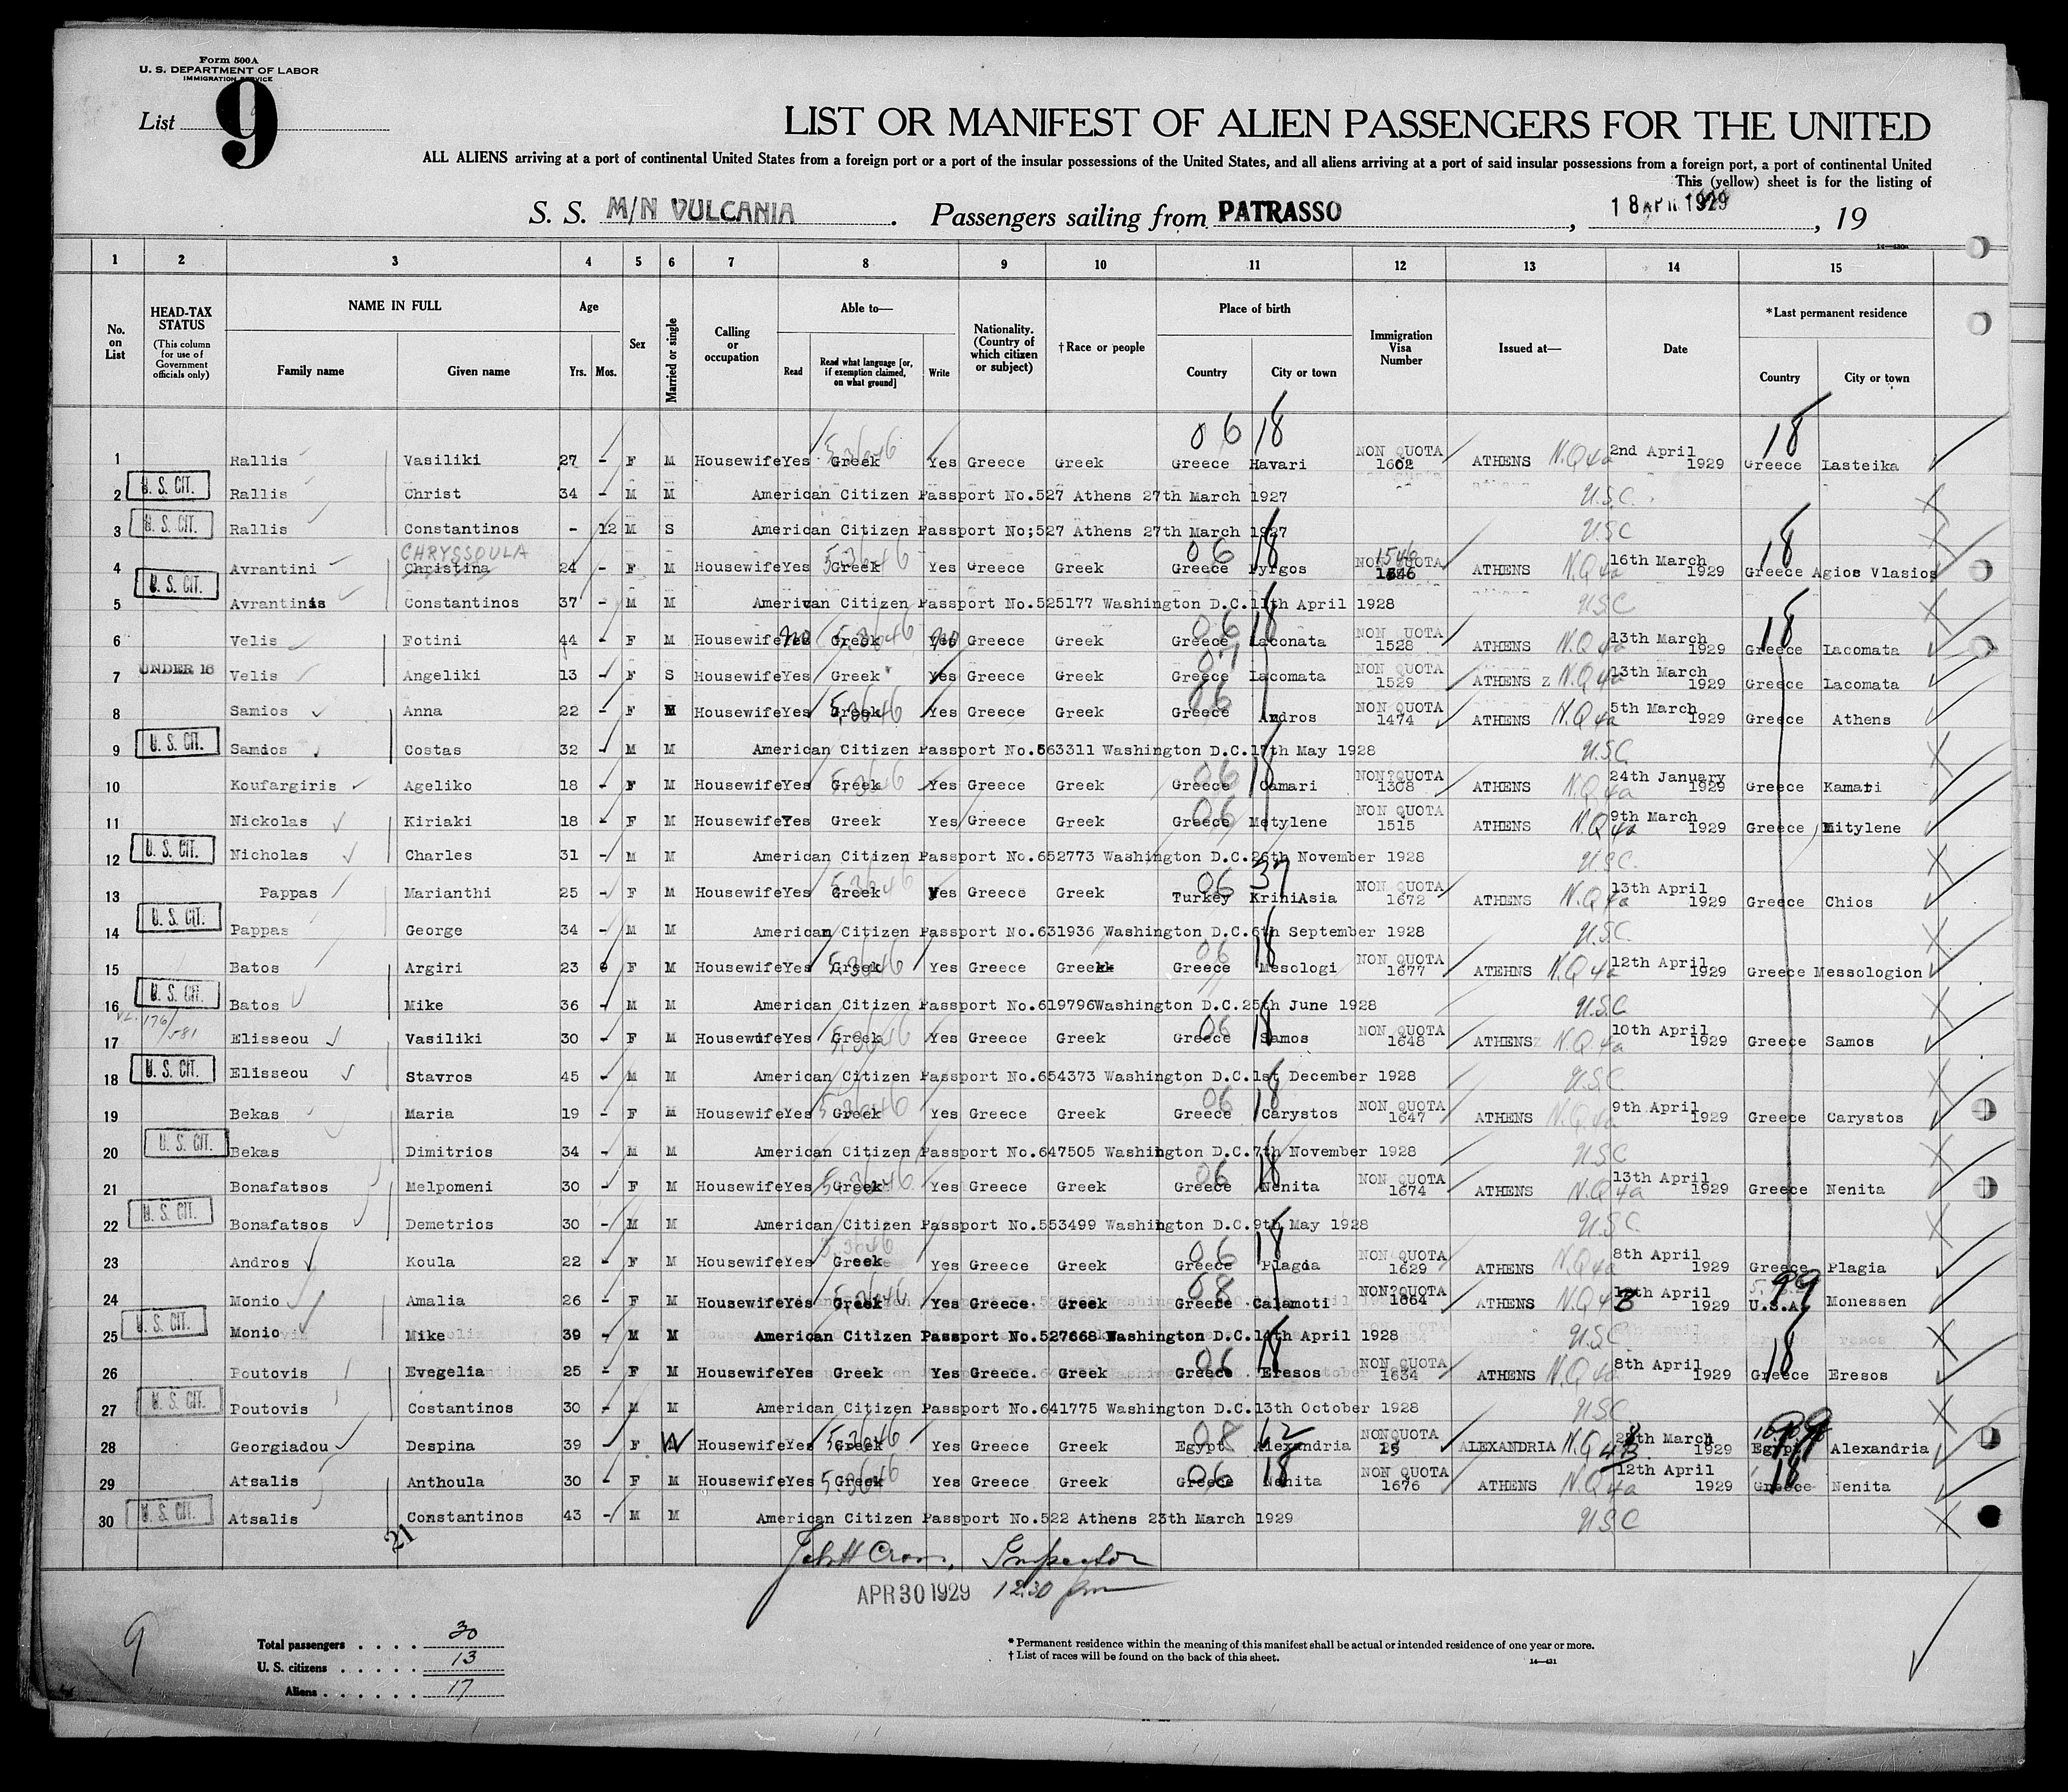 Form 500A
U. S. DEPARTMENT OF LABOR
IMMIGRATION SERVICE
List 9
LIST OR MANIFEST OF ALIEN PASSENGERS FOR THE UNITED
ALL ALIENS arriving at a port of continental United States from a foreign port or a port of the insular possessions of the United States, and all aliens arriving at a port of said insular possessions from a foreign port, a port of continental United
This (yellow) sheet is for the listing of
S. S. M/N VULCANIA. Passengers sailing from PATRASSO, 18 APR 1929, 19
14—430a
1 2 3 4 5 6 7 8 9 10 11 12 13 14 15
No. on List
HEAD-TAX STATUS (This column for use of Government officials only)
NAME IN FULL Family name Given name
Age Yrs. Mos.
Sex
Married or single
Calling or occupation
Able to— Read Read what language [or, if exemption claimed, on what ground] Write
Nationality. (Country of which citizen or subject)
† Race or people
Place of birth Country City or town
Immigration Visa Number
Issued at—
Date
*Last permanent residence Country City or town
1 Rallis Vasiliki 27 - F M Housewife Yes 53646 Greek Yes Greece Greek 06 18 Greece Havari NON QUOTA 1602 ATHENS N.Q 4a 2nd April 1929 18 Greece Lasteika
2 U. S. CIT. Rallis Christ 34 - M M American Citizen Passport No.527 Athens 27th March 1927 U.S.C.
3 U. S. CIT. Rallis Constantinos - 12 M S American Citizen Passport No;527 Athens 27th March 1927 U.S.C
4 Avrantini CHRYSSOULA Christina 24 - F M Housewife Yes 53646 Greek Yes Greece Greek 06 18 Greece Pyrgos NON QUOTA 1546 1546 ATHENS N.Q 4a 16th March 1929 18 Greece Agios Vlasios
5 U. S. CIT. Avrantinis Constantinos 37 - M M American Citizen Passport No.525177 Washington D.C.11th April 1928 U.S.C
6 Velis Fotini 44 - F M Housewife Yes no 53646 Greek Yes no Greece Greek 06 18 Greece Laconata NON QUOTA 1528 ATHENS N.Q 4a 13th March 1929 18 Greece Lacomata
7 UNDER 16 Velis Angeliki 13 - F S Housewife Yes Greek Yes Greece Greek 07 Greece Lacomata NON QUOTA 1529 ATHENS Z N.Q 4a 13th March 1929 Greece Lacomata
8 Samios Anna 22 - F M Housewife Yes 53646 Greek Yes Greece Greek 06 Greece Andros NON QUOTA 1474 ATHENS N.Q 4a 5th March 1929 Greece Athens
9 U. S. CIT. Samios Costas 32 - M M American Citizen Passport No.563311 Washington D.C.17th May 1928 U.S.C.
10 Koufargiris Ageliko 18 - F M Housewife Yes 53646 Greek Yes Greece Greek 06 18 Greece Camari NON?QUOTA 1308 ATHENS N.Q 4a 24th January 1929 Greece Kamari
11 Nickolas Kiriaki 18 - F M Housewife Yes Greek Yes Greece Greek 06 Greece Metylene NON QUOTA 1515 ATHENS N.Q 4a 9th March 1929 Greece Mitylene
12 U. S. CIT. Nicholas Charles 31 - M M American Citizen Passport No.652773 Washington D.C.26th November 1928 U.S.C.
13 Pappas Marianthi 25 - F M Housewife Yes 53646 Greek Yes Greece Greek 06 37 Turkey KriniAsia NON QUOTA 1672 ATHENS N.Q 4a 13th April 1929 Greece Chios
14 U. S. CIT. Pappas George 34 - M M American Citizen Passport No.631936 Washington D.C.6th September 1928 U.S.C.
15 Batos Argiri 23 F M Housewife Yes 53646 Greek Yes Greece Greek 06 18 Greece Mesologi NON QUOTA 1677 ATEHNS N.Q 4a 12th April 1929 Greece Messologion
16 U. S. CIT. Batos Mike 36 - M M American Citizen Passport No.619796Washington D.C.25th June 1928 U.S.C.
17 176/581 Elisseou Vasiliki 30 - F M Housewife Yes 53646 Greek Yes Greece Greek 06 18 Greece Samos NON QUOTA 1648 ATHENS N.Q. 4a 10th April 1929 Greece Samos
18 U. S. CIT. Elisseou Stavros 45 - M M American Citizen Passport No.654373 Washington D.C.1st December 1928 U.S.C.
19 Bekas Maria 19 - F M Housewife Yes 53646 Greek Yes Greece Greek 06 18 Greece Carystos NON QUOTA 1647 ATHENS N.Q 4a 9th April 1929 Greece Carystos
20 U. S. CIT. Bekas Dimitrios 34 - M M American Citizen Passport No.647505 Washington D.C.7th November 1928 U.S.C
21 Bonafatsos Melpomeni 30 - F M Housewife Yes 53646 Greek Yes Greece Greek 06 18 Greece Nenita NON QUOTA 1674 ATHENS N.Q 4a 13th April 1929 Greece Nenita
22 U. S. CIT. Bonafatsos Demetrios 30 - M M American Citizen Passport No.553499 Washington D.C.9th May 1928 U.S.C.
23 Andros Koula 22 - F M Housewife Yes 53646 Greek Yes Greece Greek 06 18 Greece Plagia NON QUOTA 1629 ATHENS N.Q 4a 8th April 1929 Greece Plagia
24 Monio Amalia 26 - F M Housewife Yes 53646 Greek Yes Greece Greek 08 Greece Calamoti NON?QUOTA 1664 ATHENS N.Q 4B April 1929 99 U.S.A. Monessen
25 U. S. CIT. Monio Mike 39 - M M American Citizen Passport No.527668 Washington D.C.14th April 1928 U.S.C
26 Poutovis Evegelia 25 - F M Housewife Yes Greek Yes Greece Greek 06 18 Greece Eresos NON QUOTA 1634 ATHENS N.Q 4a 8th April 1929 18 Greece Eresos
27 U. S. CIT. Poutovis Costantinos 30 - M M American Citizen Passport No.641775 Washington D.C.13th October 1928 U.S.C
28 Georgiadou Despina 39 - F W Housewife Yes 53646 Greek Yes Greece Greek 08 62 Egypt Alexandria NONQUOTA 15 ALEXANDRIA N.Q 4B March 1929 99 Egypt Alexandria
29 Atsalis Anthoula 30 - F M Housewife Yes 53646 Greek Yes Greece Greek 06 18 Greece Nenita NON QUOTA 1676 ATHENS N.Q 4a 12th April 1929 18 Greece Nenita
30 U. S. CIT. Atsalis Constantinos 43 - M M American Citizen Passport No.522 Athens 23th March 1929 U.S.C
21
Inspector
APR 30 1929 12:30 pm
9
Total passengers . . . . 30
U. S. citizens . . . . . 13
Aliens . . . . . . 17
* Permanent residence within the meaning of this manifest shall be actual or intended residence of one year or more.
† List of races will be found on the back of this sheet.
14—431